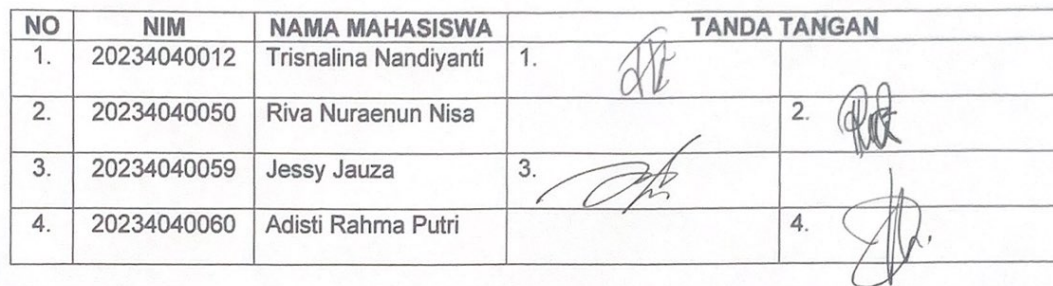 NO NIM NAMA MAHASISWA TANDA TANGAN
1. 20234040012 Trisnalina Nandiyanti 1.
2. 20234040050 Riva Nuraenun Nisa 2.
3. 20234040059 Jessy Jauza 3.
4. 20234040060 Adisti Rahma Putri 4.